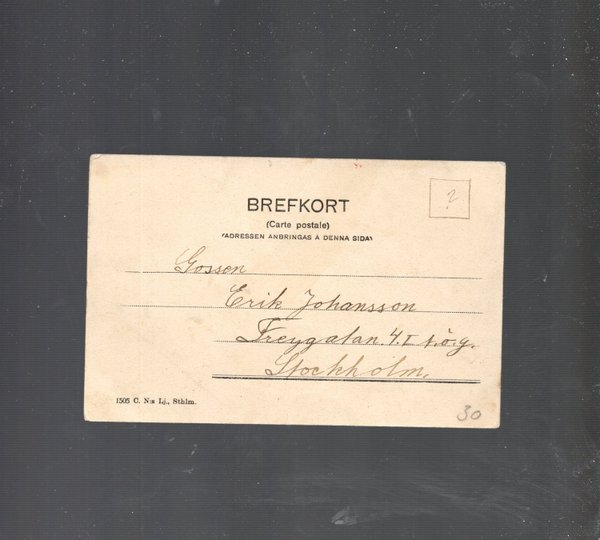 BREFKORT
(Carte postale)
ADRESSEN ANBRINGAS Å DENNA SIDA
?
Gossen
Erik Johansson
Freygatan. 4. I t. ö. g.
Stockholm.
1505 C. N:s Lj., Sthlm.
30